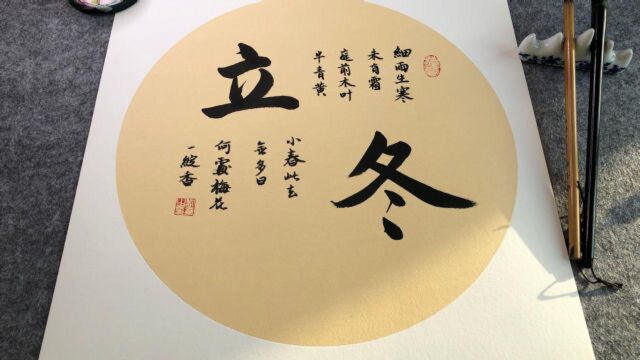 立
冬
細雨生寒
未有霜
庭前木叶
半青黄
小春此去
無多日
何處梅花
一綻香